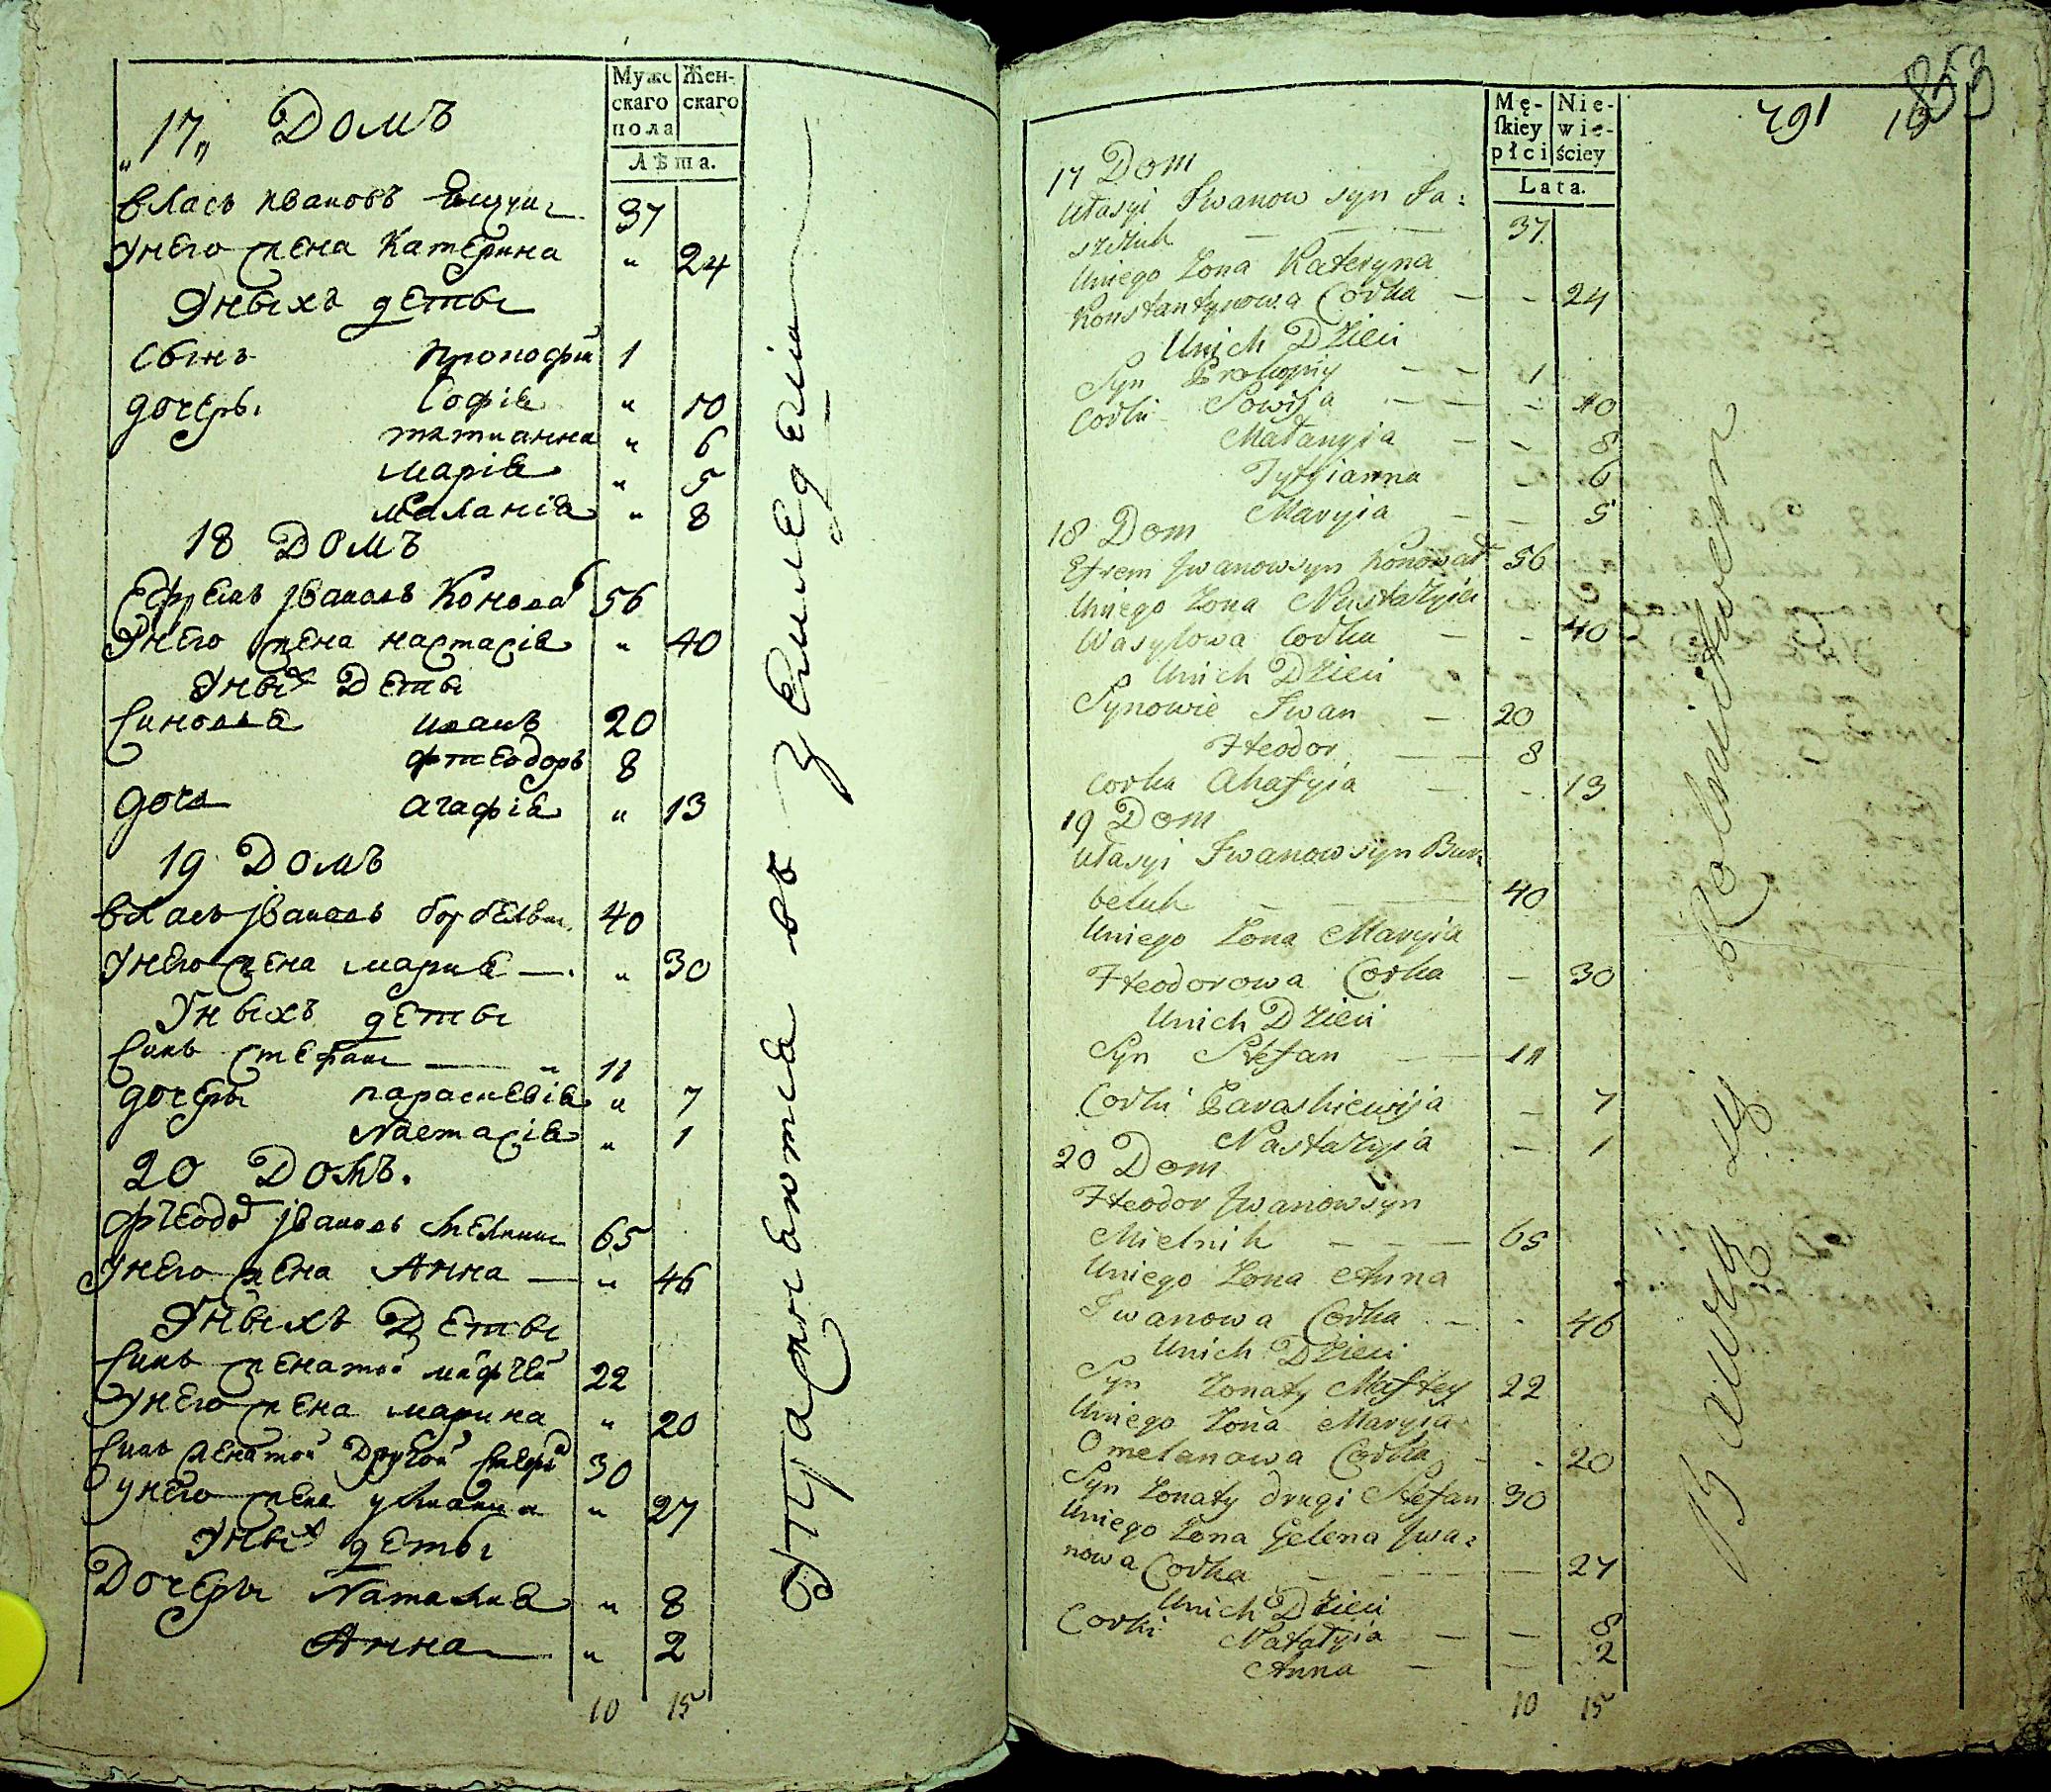 Мужс Жен-
скаго скаго
пола
Лѣта.
„17„ Домъ
Власъ Ивановъ 37
Унего жена Катерина " 24
Уныхъ деты
Сынъ Прокофій 1
дочеры Софіа " 10
татианна " 6
маріа " 5
маланіа " 8
18 Домъ
Ефремъ Јвановъ Коновал 56
Унего жена настасіа " 40
Уных Деты
Синовья иванъ 20
фтеодоръ 8
доча агафіа " 13
19 Домъ
Власъ Јвановъ 40
Унего жена мариа — " 30
Уныхъ деты
Синъ стефанъ — " 11
дочеры параскевіа " 7
Настасіа " 1
20 Домъ.
Фтеодор Јвановъ мелник 65
Унего жена Анна — " 46
Уныхъ Деты
Синъ женатой мафтей 22
Унего жена марина " 20
Синъ женатой Другой 30
Унего жена " 27
Уных деты
Дочеры Наталиа " 8
Анна " 2
10 15
Упражняются въ земледелии
853
791 18
Mę- Nie-
ſkiey wie-
płci ściey
Lata.
17 Dom
Własyi Jwanow syn Ja:
37.
Uniego Żona Kateryna
Konstantynowa Corka — - 24
Unich Dzieci
Syn Prokopiy — — 1
Corki Sowija — — - 10
Małanyia — - 8
Tytyianna - 6
Maryia — — 5
18 Dom
Efrem Jwanow syn Konował 56
Uniego Żona Nastazyia
Wasylowa Corka — - 40
Unich Dzieci
Synowie Jwan — 20
Fteodor — — 8
Corka Ahafyia — - 13
19 Dom
Własyi Jwanow syn Bur
beluk - — 40
Uniego Żona Maryia
Fteodorowa Corka — 30
Unich Dzieci
Syn Stefan — 11
Corki Paraskiewija — 7
Nastazyia — 1
20 Dom
Fteodor Jwanow syn
Mielnik — — — 65
Uniego Żona Anna
Jwanowa Corka — - 46
Unich Dzieci
Syn Żonaty Maftey 22
Uniego Żona Maryia
Omelanowa Corka - - 20
Syn Żonaty drugi Stefan 30
Uniego Żona Gelena Jwa:
nowa Corka — — 27
Unich Dzieci
Corki Natalyia — — 8
Anna — — 2
10 15
Bawią się Rolnictwem